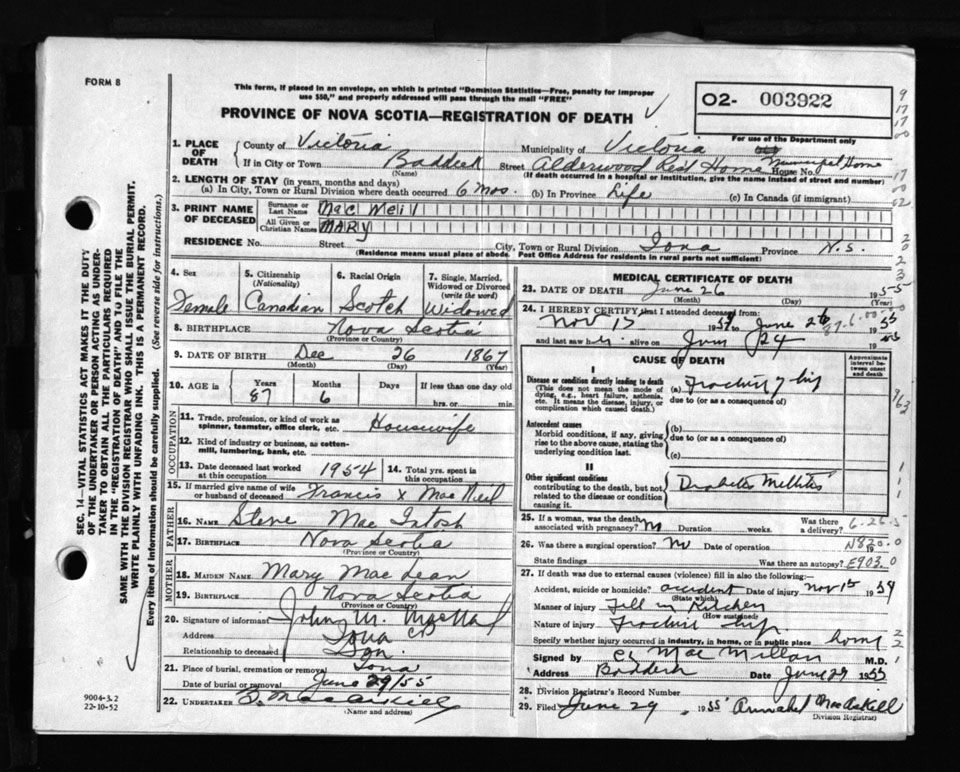 FORM 8
This form, if placed in an envelope, on which is printed "Dominion Statistics—Free, penalty for improper
use $50," and properly addressed will pass through the mail "FREE"
PROVINCE OF NOVA SCOTIA—REGISTRATION OF DEATH
O2- 003922
For use of the Department only
1. PLACE OF DEATH
County of Victoria Municipality of Victoria
If in City or Town Baddeck Street Alderwood Rest Home House No. Municipal Home
(Name) (If death occurred in a hospital or institution, give the name instead of street and number)
2. LENGTH OF STAY (in years, months and days)
(a) In City, Town or Rural Division where death occurred 6 mos. (b) In Province Life (c) In Canada (if immigrant)
3. PRINT NAME OF DECEASED
Surname or Last Name Mac Neil
All Given or Christian Names MARY
RESIDENCE No. Street City, Town or Rural Division Iona Province N.S.
(Residence means usual place of abode. Post Office Address for residents in rural parts not sufficient)
4. Sex Female
5. Citizenship (Nationality) Canadian
6. Racial Origin Scotch
7. Single, Married, Widowed or Divorced (write the word) Widowed
8. BIRTHPLACE Nova Scotia
(Province or Country)
9. DATE OF BIRTH Dec 26 1867
(Month) (Day) (Year)
10. AGE in Years 87 Months 6 Days If less than one day hrs. or min.
OCCUPATION
11. Trade, profession, or kind of work as spinner, teamster, office clerk, etc. Housewife
12. Kind of industry or business, as cotton-mill, lumbering, bank, etc.
13. Date deceased last worked at this occupation 1954
14. Total yrs. spent in this occupation
15. If married give name of wife or husband of deceased Francis X MacNeil
FATHER
16. NAME Steve Mac Intosh
17. BIRTHPLACE Nova Scotia
(Province or Country)
MOTHER
18. MAIDEN NAME Mary Mac Lean
19. BIRTHPLACE Nova Scotia
(Province or Country)
20. Signature of informant John M.
Address Iona CB
Relationship to deceased Son.
21. Place of burial, cremation or removal Iona
Date of burial or removal June 29/55
22. UNDERTAKER
(Name and address)
MEDICAL CERTIFICATE OF DEATH
23. DATE OF DEATH June 26 1955
(Month) (Day) (Year)
24. I HEREBY CERTIFY that I attended deceased from:
Nov 15 1954 to June 26 1955
and last saw her alive on June 24 1955
CAUSE OF DEATH
Approximate interval between onset and death
I
Disease or condition directly leading to death
(This does not mean the mode of dying, e.g., heart failure, asthenia, etc. It means the disease, injury, or complication which caused death.)
(a) Fracture of hip
due to (or as a consequence of)
Antecedent causes
Morbid conditions, if any, giving rise to the above cause, stating the underlying condition last.
(b)
due to (or as a consequence of)
(c)
II
Other significant conditions
contributing to the death, but not related to the disease or condition causing it.
Diabetes Mellitus
25. If a woman, was the death associated with pregnancy? No Duration weeks. Was there a delivery?
6-26-5
26. Was there a surgical operation? No Date of operation 19
N820.0
State findings Was there an autopsy?
E903.0
27. If death was due to external causes (violence) fill in also the following:—
Accident, suicide or homicide? accident Date of injury Nov 15 1954
(State which)
Manner of injury Fell in Kitchen
(How sustained)
Nature of injury Fracture hip
Specify whether injury occurred in industry, in home, or in public place home
Signed by C L MacMillan M.D.
Address Baddeck Date June 29 1955
28. Division Registrar's Record Number
29. Filed June 29 1955 Annabel MacAskill
Division Registrar
SEC. 14—VITAL STATISTICS ACT MAKES IT THE DUTY
OF THE UNDERTAKER OR PERSON ACTING AS UNDER-
TAKER TO OBTAIN ALL THE PARTICULARS REQUIRED
IN THE "REGISTRATION OF DEATH" AND TO FILE THE
SAME WITH THE DIVISION REGISTRAR WHO SHALL ISSUE THE BURIAL PERMIT.
WRITE PLAINLY WITH UNFADING INK. THIS IS A PERMANENT RECORD.
Every item of information should be carefully supplied. (See reverse side for instructions.)
9004-3.2
22-10-52